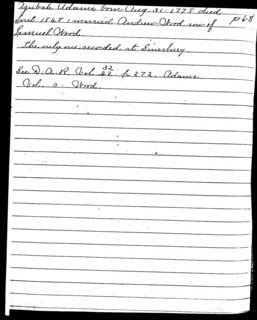 Adams born Aug. 31-1778 died p 68
Sept. 1868; married Andrew Wood son of
Samuel Wood.
The only one recorded at Simsbury.
See D.A.R. Vol. 32 p. 272. Adams
Vol. Wood.